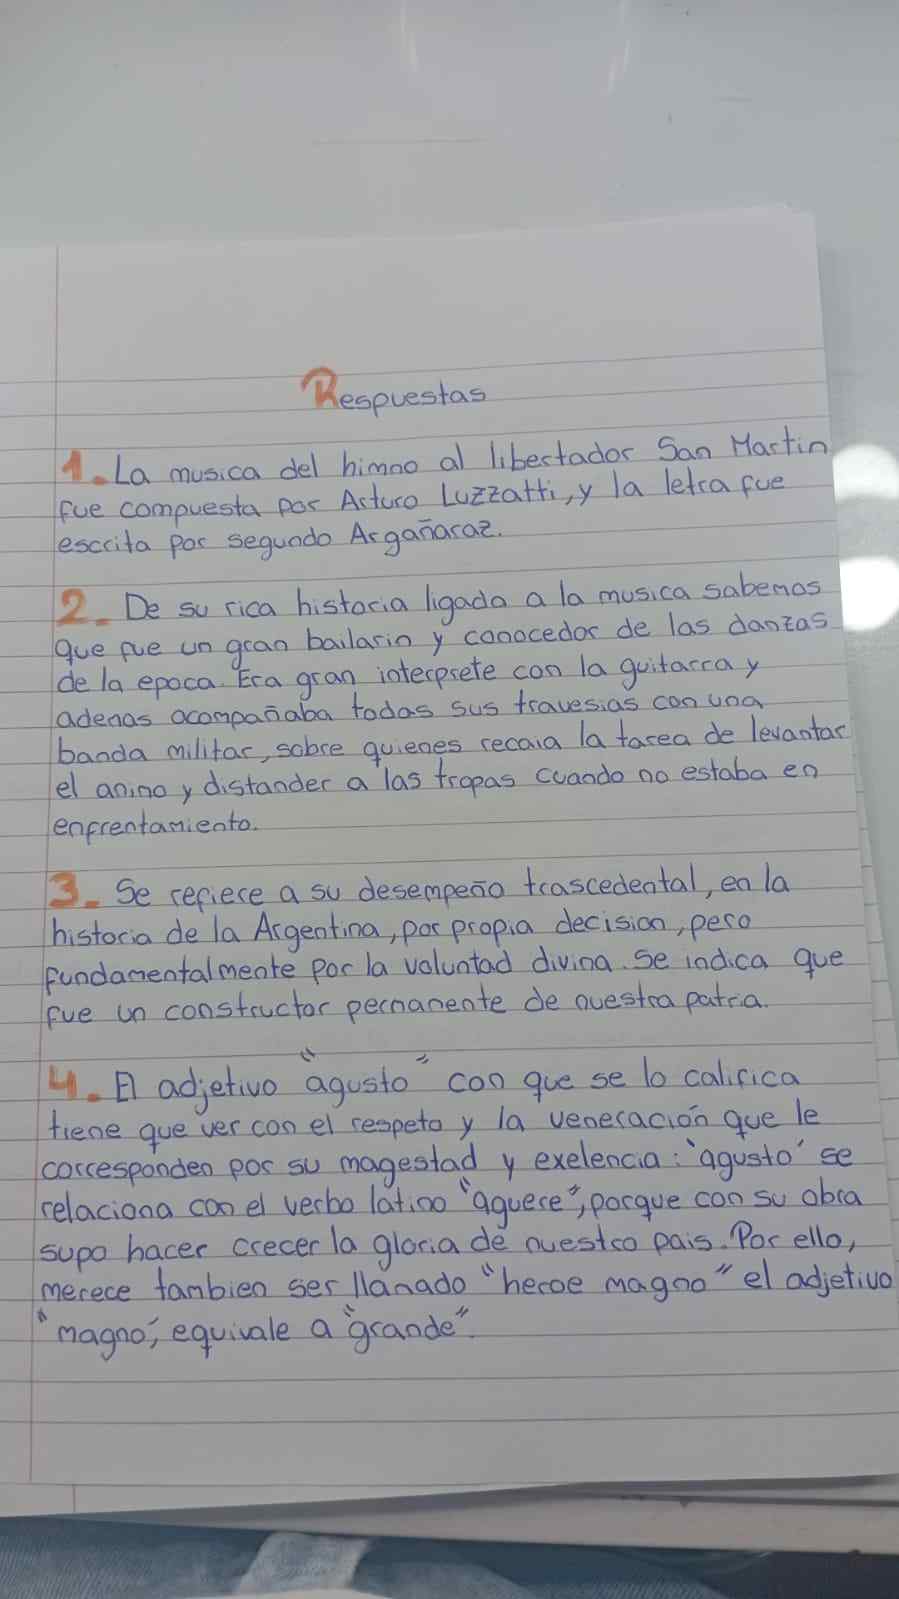 Respuestas
1. La musica del himno al libertador San Martin
fue compuesta por Arturo Luzzatti, y la letra fue
escrita por segundo Argañaraz.
2. De su rica historia ligada a la musica sabemos
que fue un gran bailarin y conocedor de las danzas
de la epoca. Era gran interprete con la guitarra y
ademas acompañaba todas sus travesias con una
banda militar, sobre quienes recaia la tarea de levantar
el animo y distander a las tropas cuando no estaba en
enfrentamiento.
3. Se refiere a su desempeño trascedental, en la
historia de la Argentina, por propia decision, pero
fundamentalmente por la voluntad divina. Se indica que
fue un constructor permanente de nuestra patria.
4. El adjetivo "agusto" con que se lo califica
tiene que ver con el respeto y la veneración que le
corresponden por su magestad y exelencia: "agusto" se
relaciona con el verbo latino "aguere", porque con su obra
supo hacer crecer la gloria de nuestro pais. Por ello,
merece tambien ser llamado "heroe magno" el adjetivo
"magno", equivale a "grande".